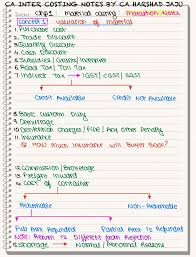 CA INTER COSTING NOTES BY CA HARSHAD JAJU
Chp 1 : Material Costing Marathon Notes
Concept 1 Valuation of material
1. Purchase Cost
2. Trade Discount
3. Quantity Discount
4. Cash Discount
5. Subsidies / Grants
6. Road Tax / Toll Tax
7. Indirect Tax → IGST / CGST / SGST
Credit Available Credit Not Available
8. Basic Custom Duty
9. Demurrage
10. Detention Charges / Fine / Any Other Penalty
11. Insurance
Q How much Insurance will Buyer Book?
12. Commission / Brokerage
13. Freight Inward
14. Cost of Container
Returnable Non-Returnable
Full Amt Refunded Partial Amt is Refunded
Note: Return is Different from Rejection
15. Shortage → Normal / Abnormal Reasons